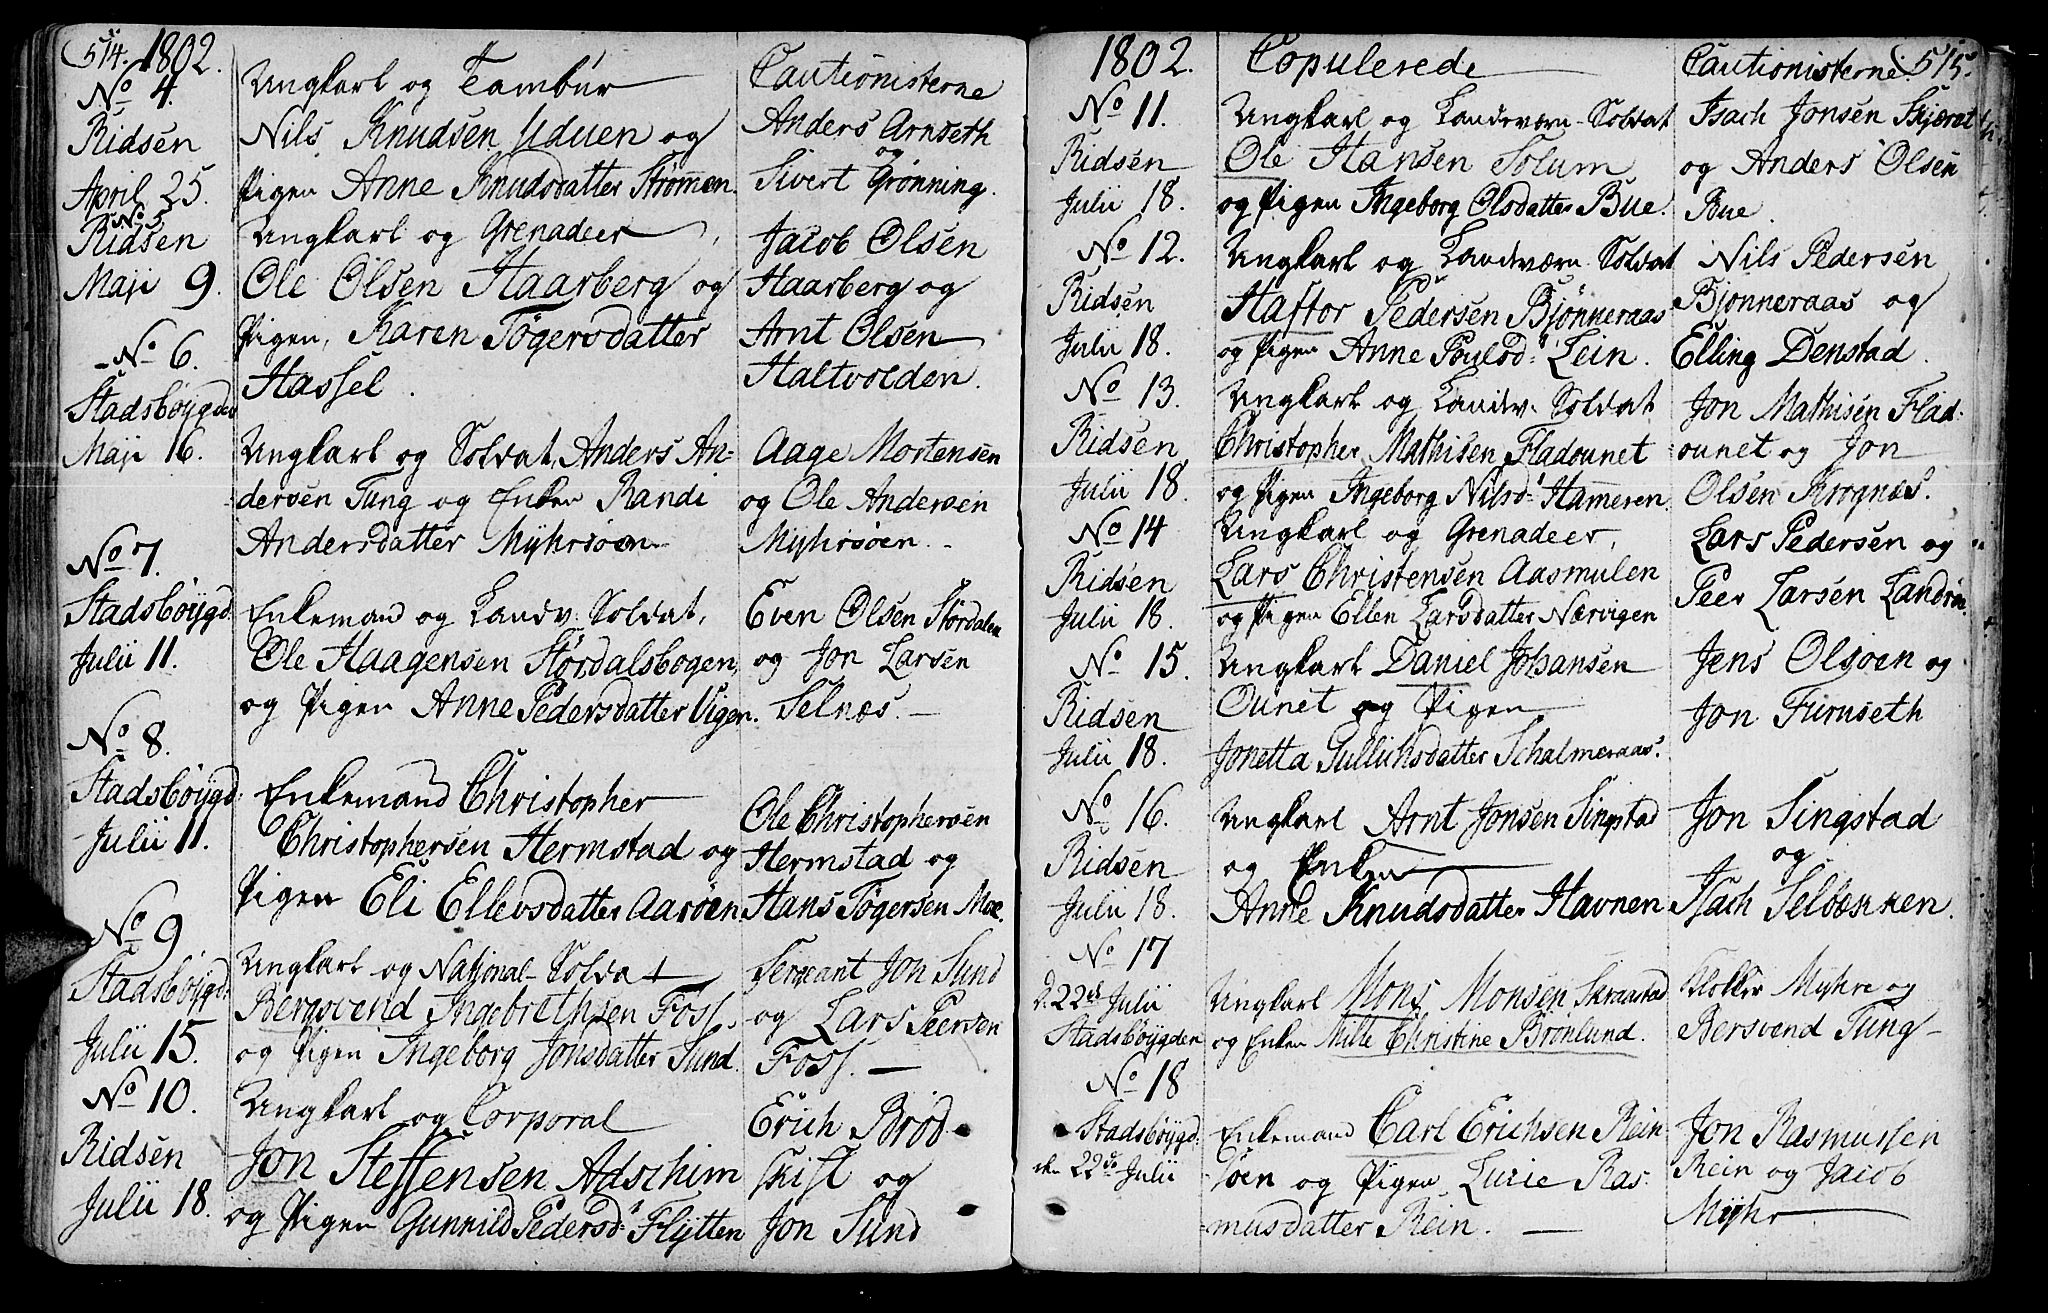 514. 1802.
No 4.
Ridsen
April 25.
Ungkarl og Tambur
Nils Knudsen Uduen og
Pigen Anne Knudsdatter Strømmen.
Cautionisterne
Anders Arnseth
og
Sivert Grønning.
No 5
Ridsen
Maji 9.
Ungkarl og Grenadeer
Ole Olsen Haarberg og
Pigen, Karen Tøgersdatter
Hassel.
Jacob Olsen
Haarberg og
Arnt Olsen
Haltvolden.
No 6.
Stadsbøygden
Maji 16.
Ungkarl og Soldat, Anders An-
dersen Tung og Enken Randi
Andersdatter Myhrsøen
Aage Mortensen
og Ole Andersen
Myhrsøen.
No 7.
Stadsbøygd.
Julii 11.
Enkemand og Landv: Soldat,
Ole Haagensen Størdalsbogen,
og Pigen Anne Pedersdatter Vigen.
Even Olsen Størdalen
og Jon Larsen
Selnæs.
No 8.
Stadsbøygd:
Julii 11.
Enkemand Christopher
Christophersen Hermstad og
Pigen Eli Ellevsdatter Aasøen.
Ole Christophersen
Hermstad og
Hans Tøgersen Moe.
No 9
Stadsbøygd:
Julii 15.
Ungkarl og National-Soldat
Bergsvend Ingebrethsen Foss.
og Pigen Ingeborg Jonsdatter Sund.
Sergeant Jon Sund
og Lars Peersen
Foss.
No 10.
Ridsen
Julii 18.
Ungkarl og Corporal
Jon Steffensen Adschim
og Pigen Gunnild Pedersd: Flytten
Erich Brød-
skift og
Jon Sund
1802. Copulerede Cautionisterne 515.
No 11.
Ridsen
Julii 18.
Ungkarl og Landeværn-Soldat
Ole Hansen Solum
og Pigen Ingeborg Olsdatter Bue.
Isach Jonsen Skjæret
og Anders Olsen
Bue.
No 12.
Ridsen
Julii 18.
Ungkarl og Landværn-Soldat
Haftor Pedersen Bjønneraas
og Pigen Anne Poulsd: Lein.
Nils Pedersen
Bjønneraas og
Elling Denstad.
No 13.
Ridsen
Julii 18.
Ungkarl og Landv: Soldat
Christopher Mathisen Fladounet
og Pigen Ingeborg Nilsd: Hammeren.
Jon Mathisen Flad-
ounet og Jon
Olsen Krognæs.
No 14
Ridsen
Julii 18.
Ungkarl og Grenadeer,
Lars Christensen Aasmulen
og Pigen Ellen Larsdatter Nærvigen
Lars Pedersen og
Peer Larsen
No 15.
Ridsen
Julii 18.
Ungkarl Daniel Johansen
Ounet og Pigen
Jonetta Gullichsdatter Schalmeraas.
Jens Olsøen og
Jon Furuseth
No 16.
Ridsen
Julii 18.
Ungkarl Arnt Jonsen Singstad
og Enken
Anne Knudsdatter Havnen
Jon Singstad
og
Isach Selbækken.
No 17
d. 22de Julii
Stadsbøygden
Ungkarl Mons Monsen Skraastad
og Enken Mille Christine Brønlund.
Klokker Myhre og
Bersvend Tung
No 18
Stadsbøygd:
den 22de Julii
Enkemand Carl Erichsen Rein
søen og Pigen Lucie Ras-
musdatter Rein.
Jon Rasmussen
Rein og Jacob
Myhr